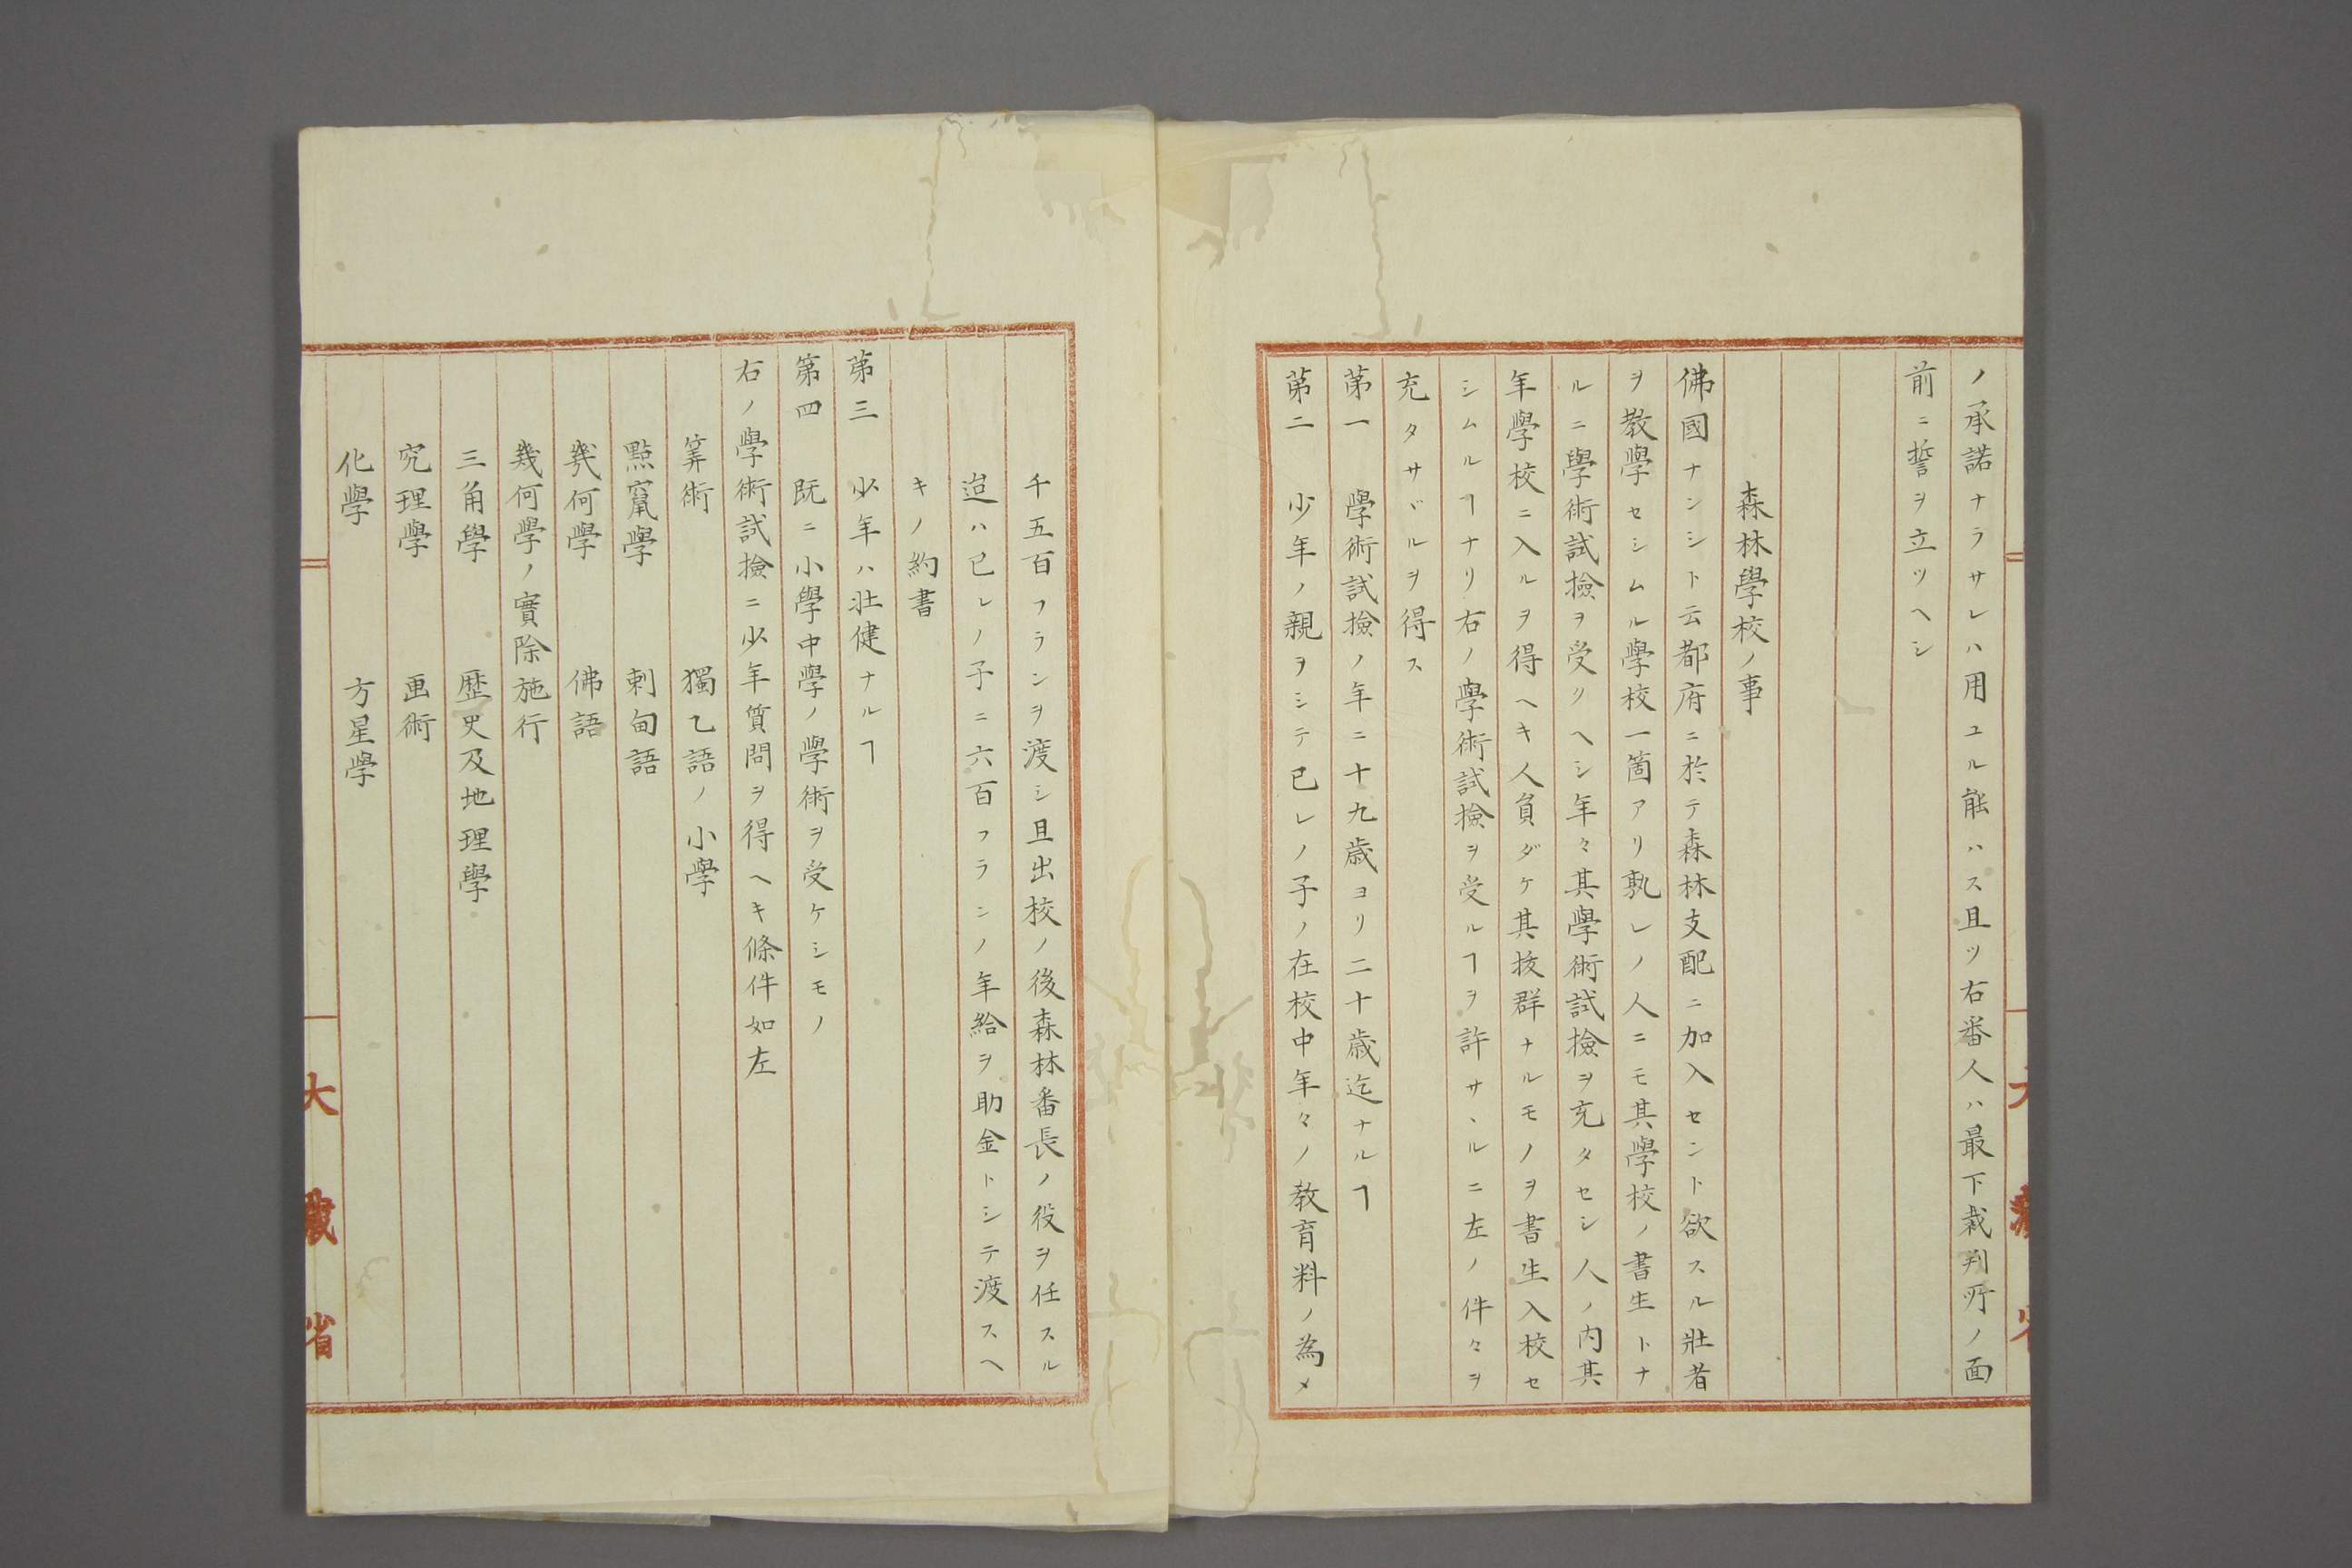 ノ承諾ナラサレハ用ユル能ハス且ツ右番人ハ最下裁判所ノ面
前ニ誓ヲ立ツヘシ
森林學校ノ事
佛國ナンシト云都府ニ於テ森林支配ニ加入セント欲スル壯者
ヲ教學セシムル學校一箇アリ孰レノ人ニモ其學校ノ書生トナ
ルニ學術試撿ヲ受リヘシ年々其學術試撿ヲ充タセシ人ノ内其
年學校ニ入ルヲ得ヘキ人員ダケ其抜群ナルモノヲ書生入校セ
シムルヿナリ右ノ學術試撿ヲ受ルヿヲ許サヽルニ左ノ件々ヲ
充タサヾルヲ得ス
苐一 學術試撿ノ年ニ十九歳ヨリ二十歳迄ナルヿ
苐二 少年ノ親ヲシテ已レノ子ノ在校中年々ノ教育料ノ為メ
千五百フランヲ渡シ且出校ノ後森林番長ノ役ヲ任スル
迨ハ已レノ子ニ六百フランノ年給ヲ助金トシテ渡スヘ
キノ約書
苐三 少年ハ壯健ナルヿ
第四 既ニ小學中學ノ學術ヲ受ケシモノ
右ノ學術試撿ニ少年質問ヲ得ヘキ條件如左
筭術 獨乙語ノ小學
點竄學 剌甸語
幾何學 佛語
幾何學ノ實除施行
三角學 歴史及地理學
究理學 画術
化學 方星學
大藏省